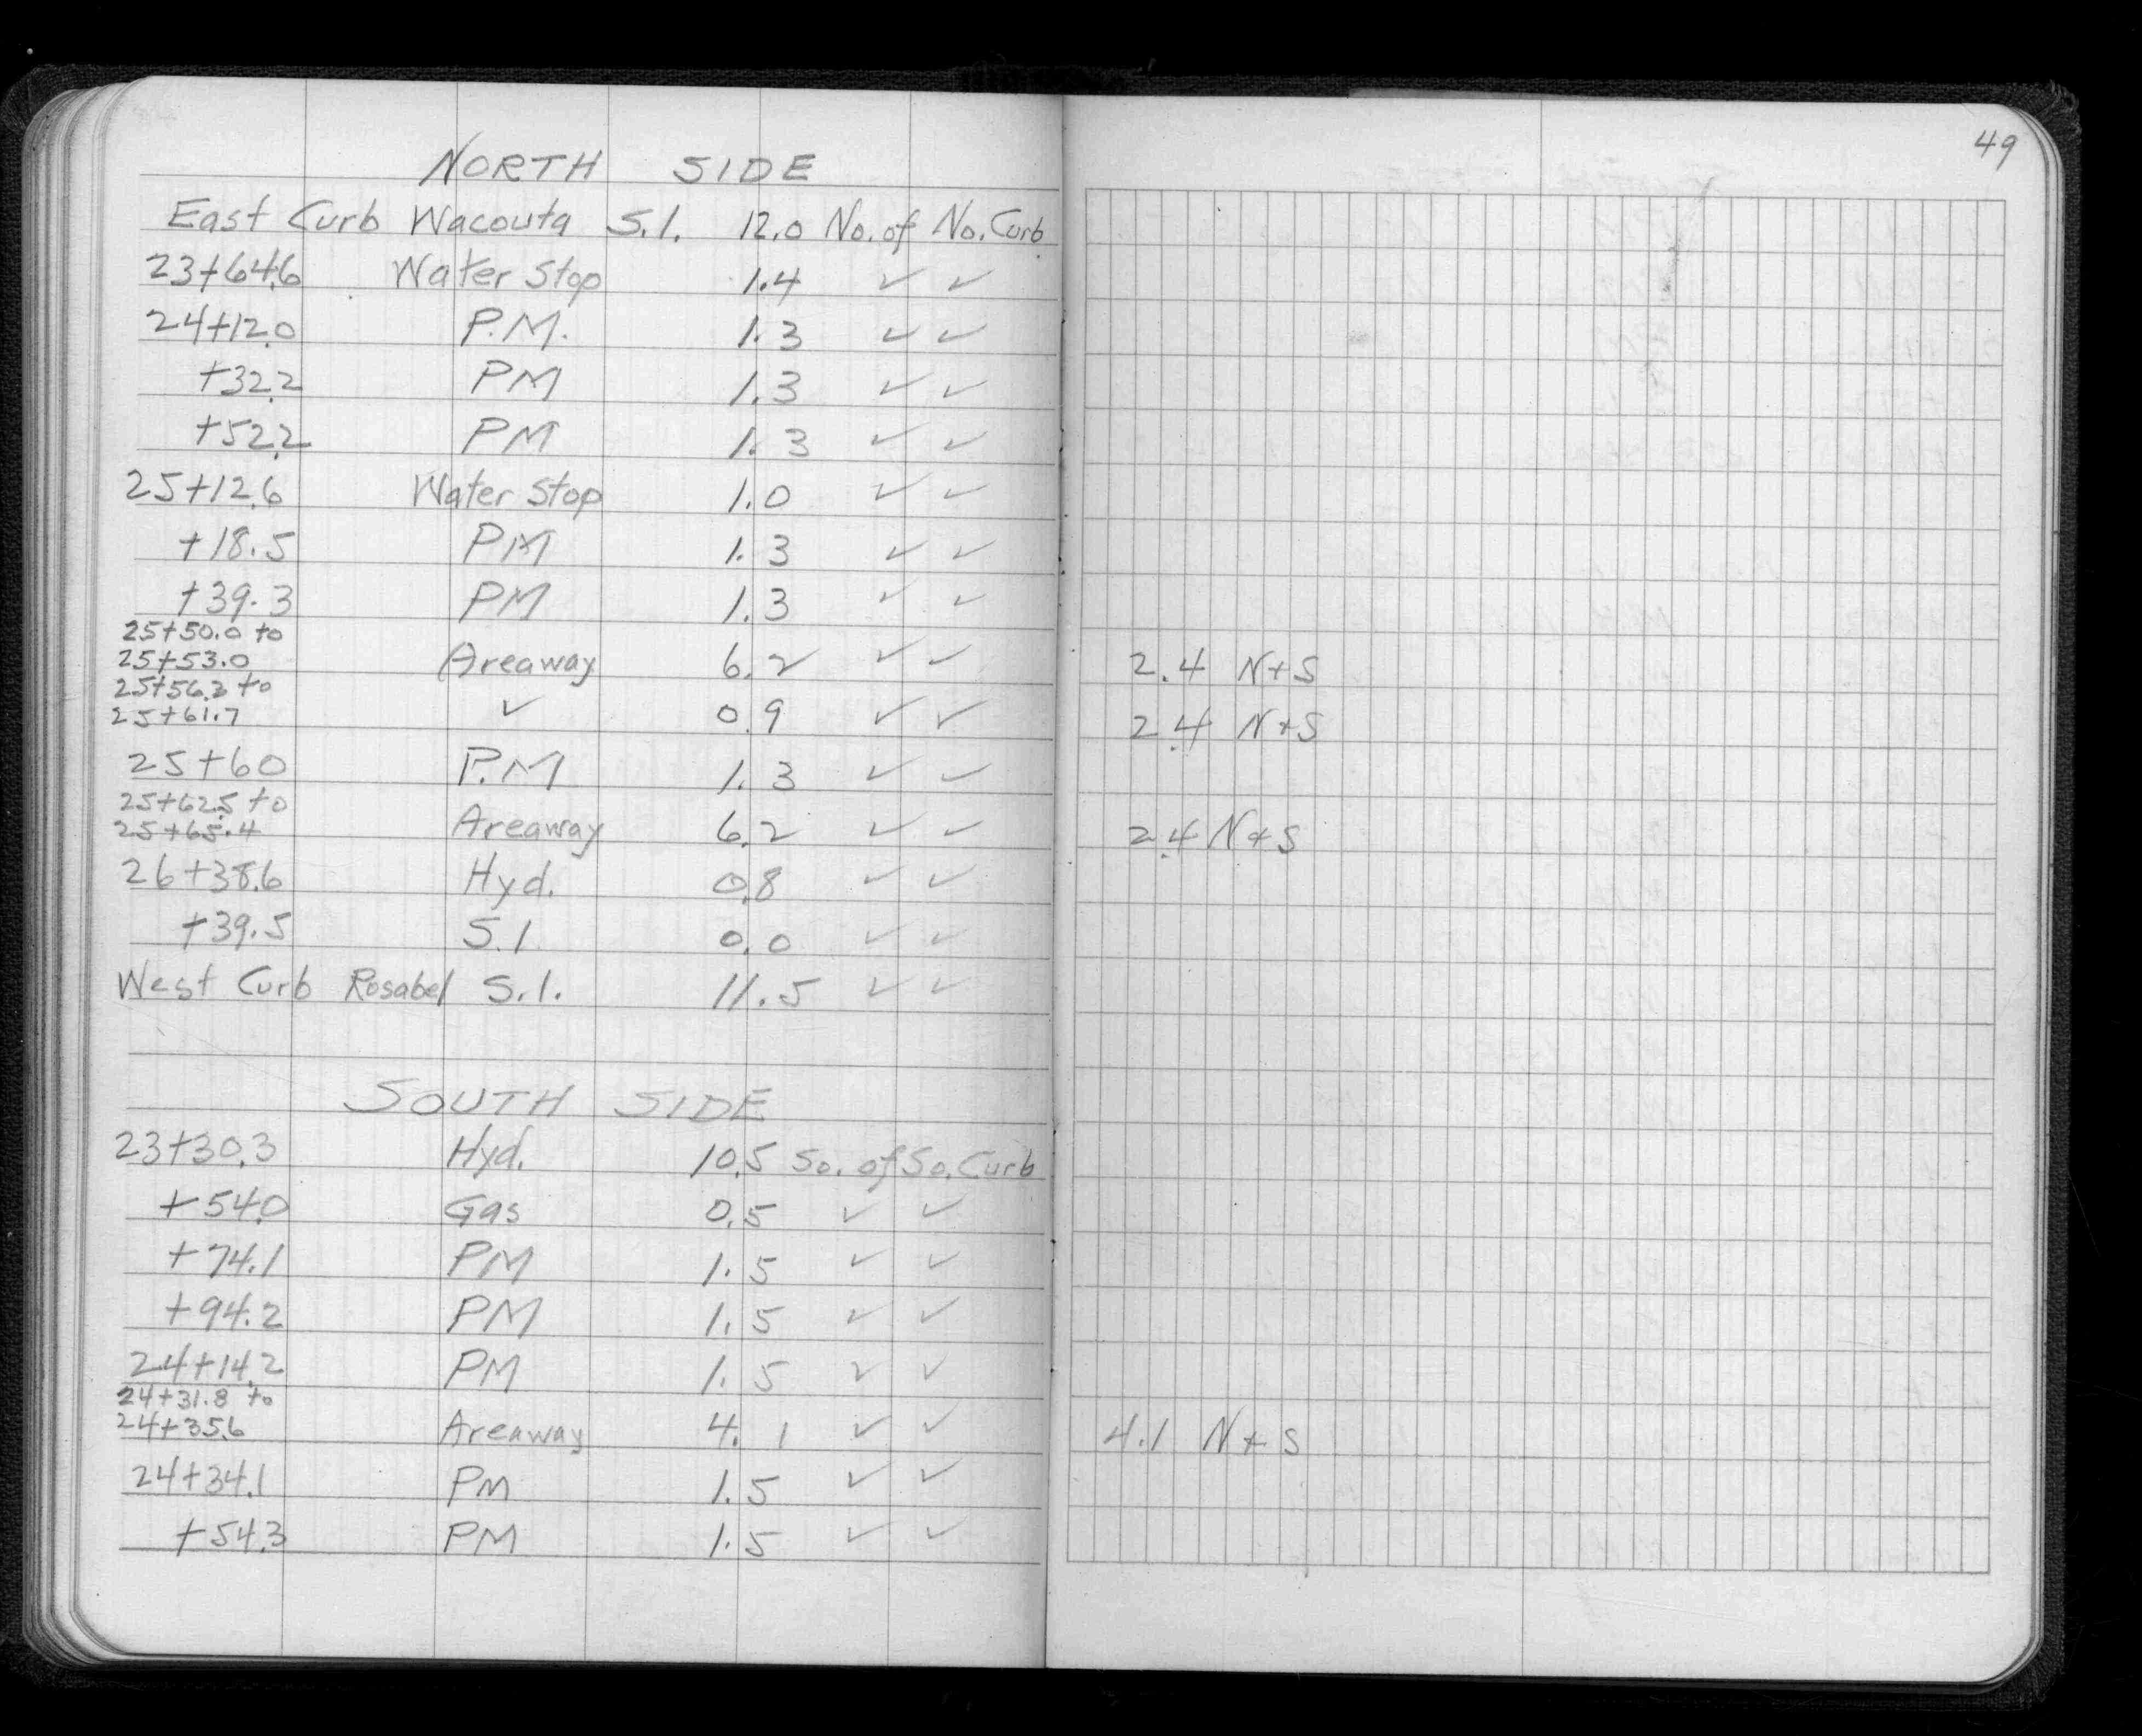 49
NORTH SIDE
East Curb Wacouta S.I. 12.0 No. of No. Curb
23+64.6 Water Stop 1.4 ✓ ✓
24+12.0 P.M. 1.3 ✓ ✓
+32.2 PM 1.3 ✓ ✓
+52.2 PM 1.3 ✓ ✓
25+12.6 Water Stop 1.0 ✓ ✓
+18.5 PM 1.3 ✓ ✓
+39.3 PM 1.3 ✓ ✓
25+50.0 to
25+53.0 Areaway 6.2 ✓ ✓ 2.4 N+S
25+56.3 to
25+61.7 ✓ 0.9 ✓ ✓ 2.4 N+S
25+60 P.M 1.3 ✓ ✓
25+62.5 to
25+65.4 Areaway 6.2 ✓ ✓ 2.4 N+S
26+38.6 Hyd. 0.8 ✓ ✓
+39.5 S.I 0.0 ✓ ✓
West Curb Rosabel S.I. 11.5 ✓ ✓
SOUTH SIDE
23+30.3 Hyd. 10.5 So. of So. Curb
+54.0 Gas 0.5 ✓ ✓
+74.1 PM 1.5 ✓ ✓
+94.2 PM 1.5 ✓ ✓
24+14.2 PM 1.5 ✓ ✓
24+31.8 to
24+35.6 Areaway 4.1 ✓ ✓ 4.1 N+S
24+34.1 PM 1.5 ✓ ✓
+54.3 PM 1.5 ✓ ✓